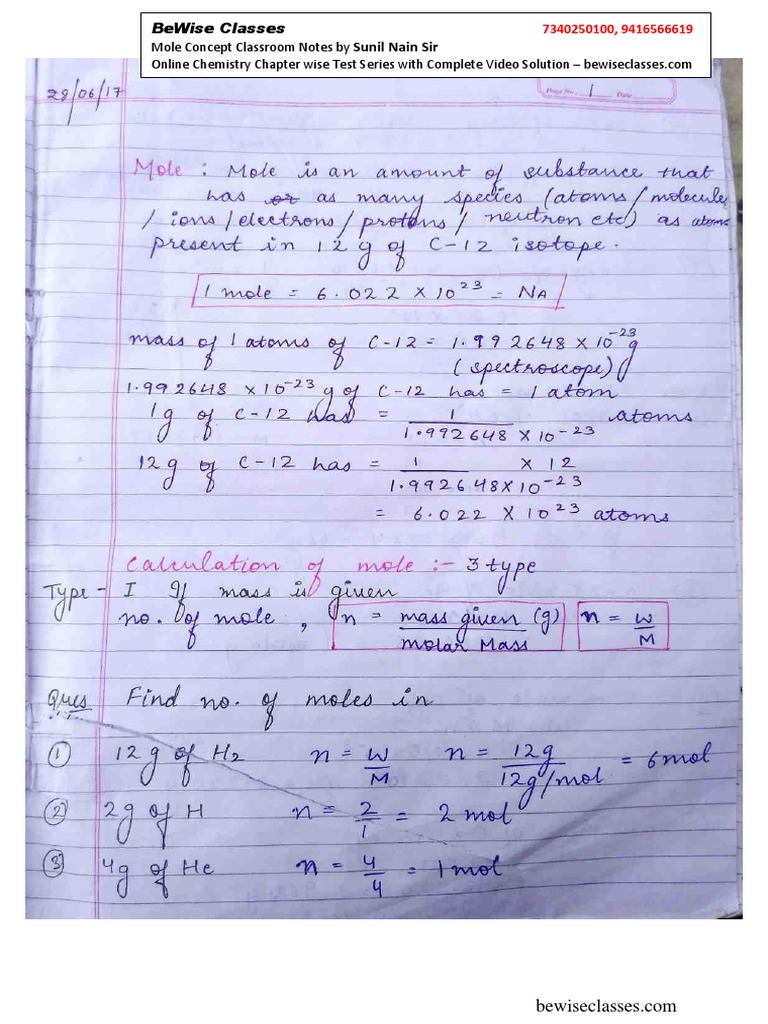 BeWise Classes 7340250100, 9416566619
Mole Concept Classroom Notes by Sunil Nain Sir
Online Chemistry Chapter wise Test Series with Complete Video Solution – bewiseclasses.com
28/06/17
Page No. 1 Date
Mole : Mole is an amount of substance that
has or as many species (atoms/molecules
/ ions/electrons/protons/ neutron etc) as atoms
present in 12 g of C-12 isotope.
1 mole = 6.022 × 10²³ = NA
mass of 1 atoms of C-12 = 1.992648 × 10⁻²³ g
(spectroscope)
1.992648 × 10⁻²³ g of C-12 has = 1 atom
1g of C-12 has = 1 / 1.992648 × 10⁻²³ atoms
12g of C-12 has = 1 / 1.992648×10⁻²³ × 12
= 6.022 × 10²³ atoms
Calculation of mole :- 3 type
Type - I If mass is given
no. of mole, n = mass given (g) / molar Mass n = W/M
Ques Find no. of moles in
① 12 g of H₂ n = W/M n = 12g / 12g/mol = 6 mol
② 2g of H n = 2/1 = 2 mol
③ 4g of He n = 4/4 = 1 mol
bewiseclasses.com